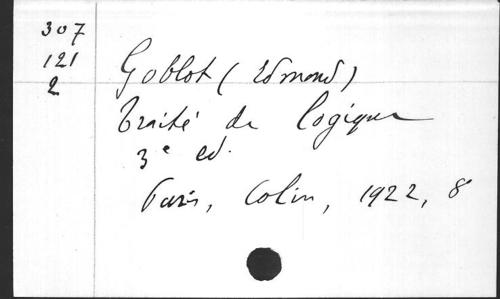 307
121
2
Goblot (Edmond)
Traité de Logique
3e ed.
Paris, Colin, 1922, 8